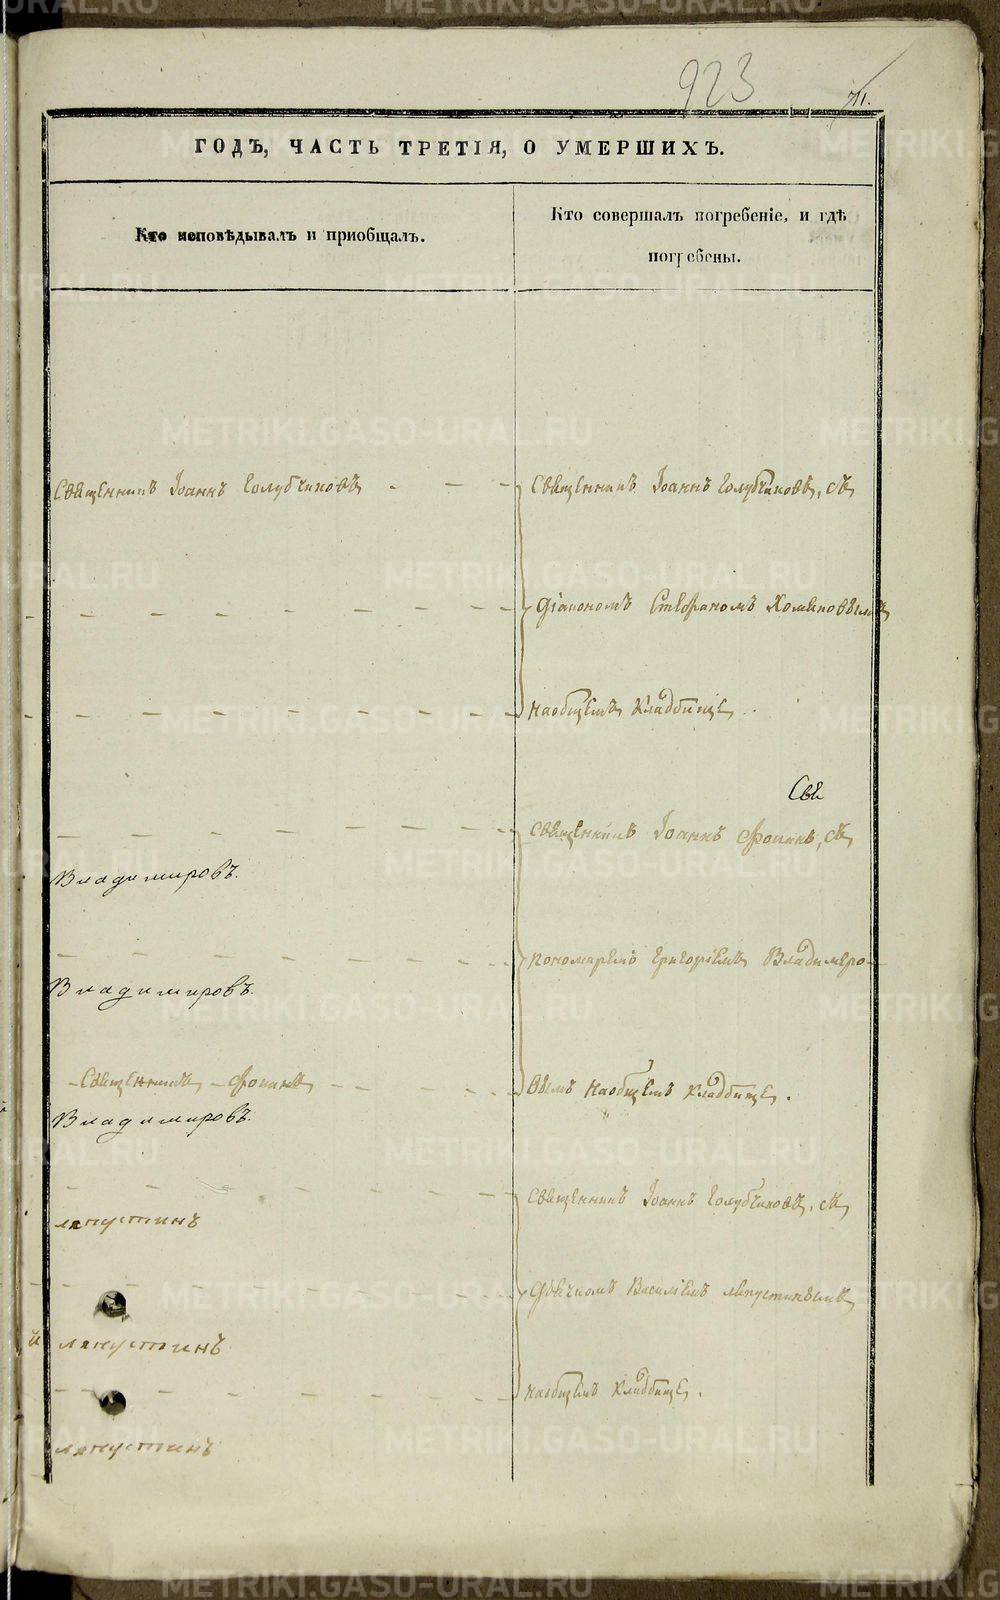 923
71.
ГОДЪ, ЧАСТЬ ТРЕТІЯ, О УМЕРШИХЪ.
Кто исповѣдывалъ и приобщалъ.
Кто совершалъ погребеніе, и гдѣ
погребены.
Священникъ Іоаннъ Голубчиковъ - - -
Священникъ Іоаннъ Голубчиковъ, съ
Діакономъ Стефаномъ Хомяковымъ
на общемъ кладбищѣ.
Свя
Священникъ Іоаннъ Фокинъ, съ
Владимировъ.
пономаремъ Григоріемъ Владимиро-
Владимировъ.
Священникъ Фокинъ
вымъ на общемъ кладбищѣ.
Владимировъ.
Священникъ Іоаннъ Голубчиковъ, съ
ляпустинъ
Дьячкомъ Василіемъ ляпустинымъ
й ляпустинъ
на общемъ кладбищѣ.
ляпустинъ
METRIKI.GASO-URAL.RU